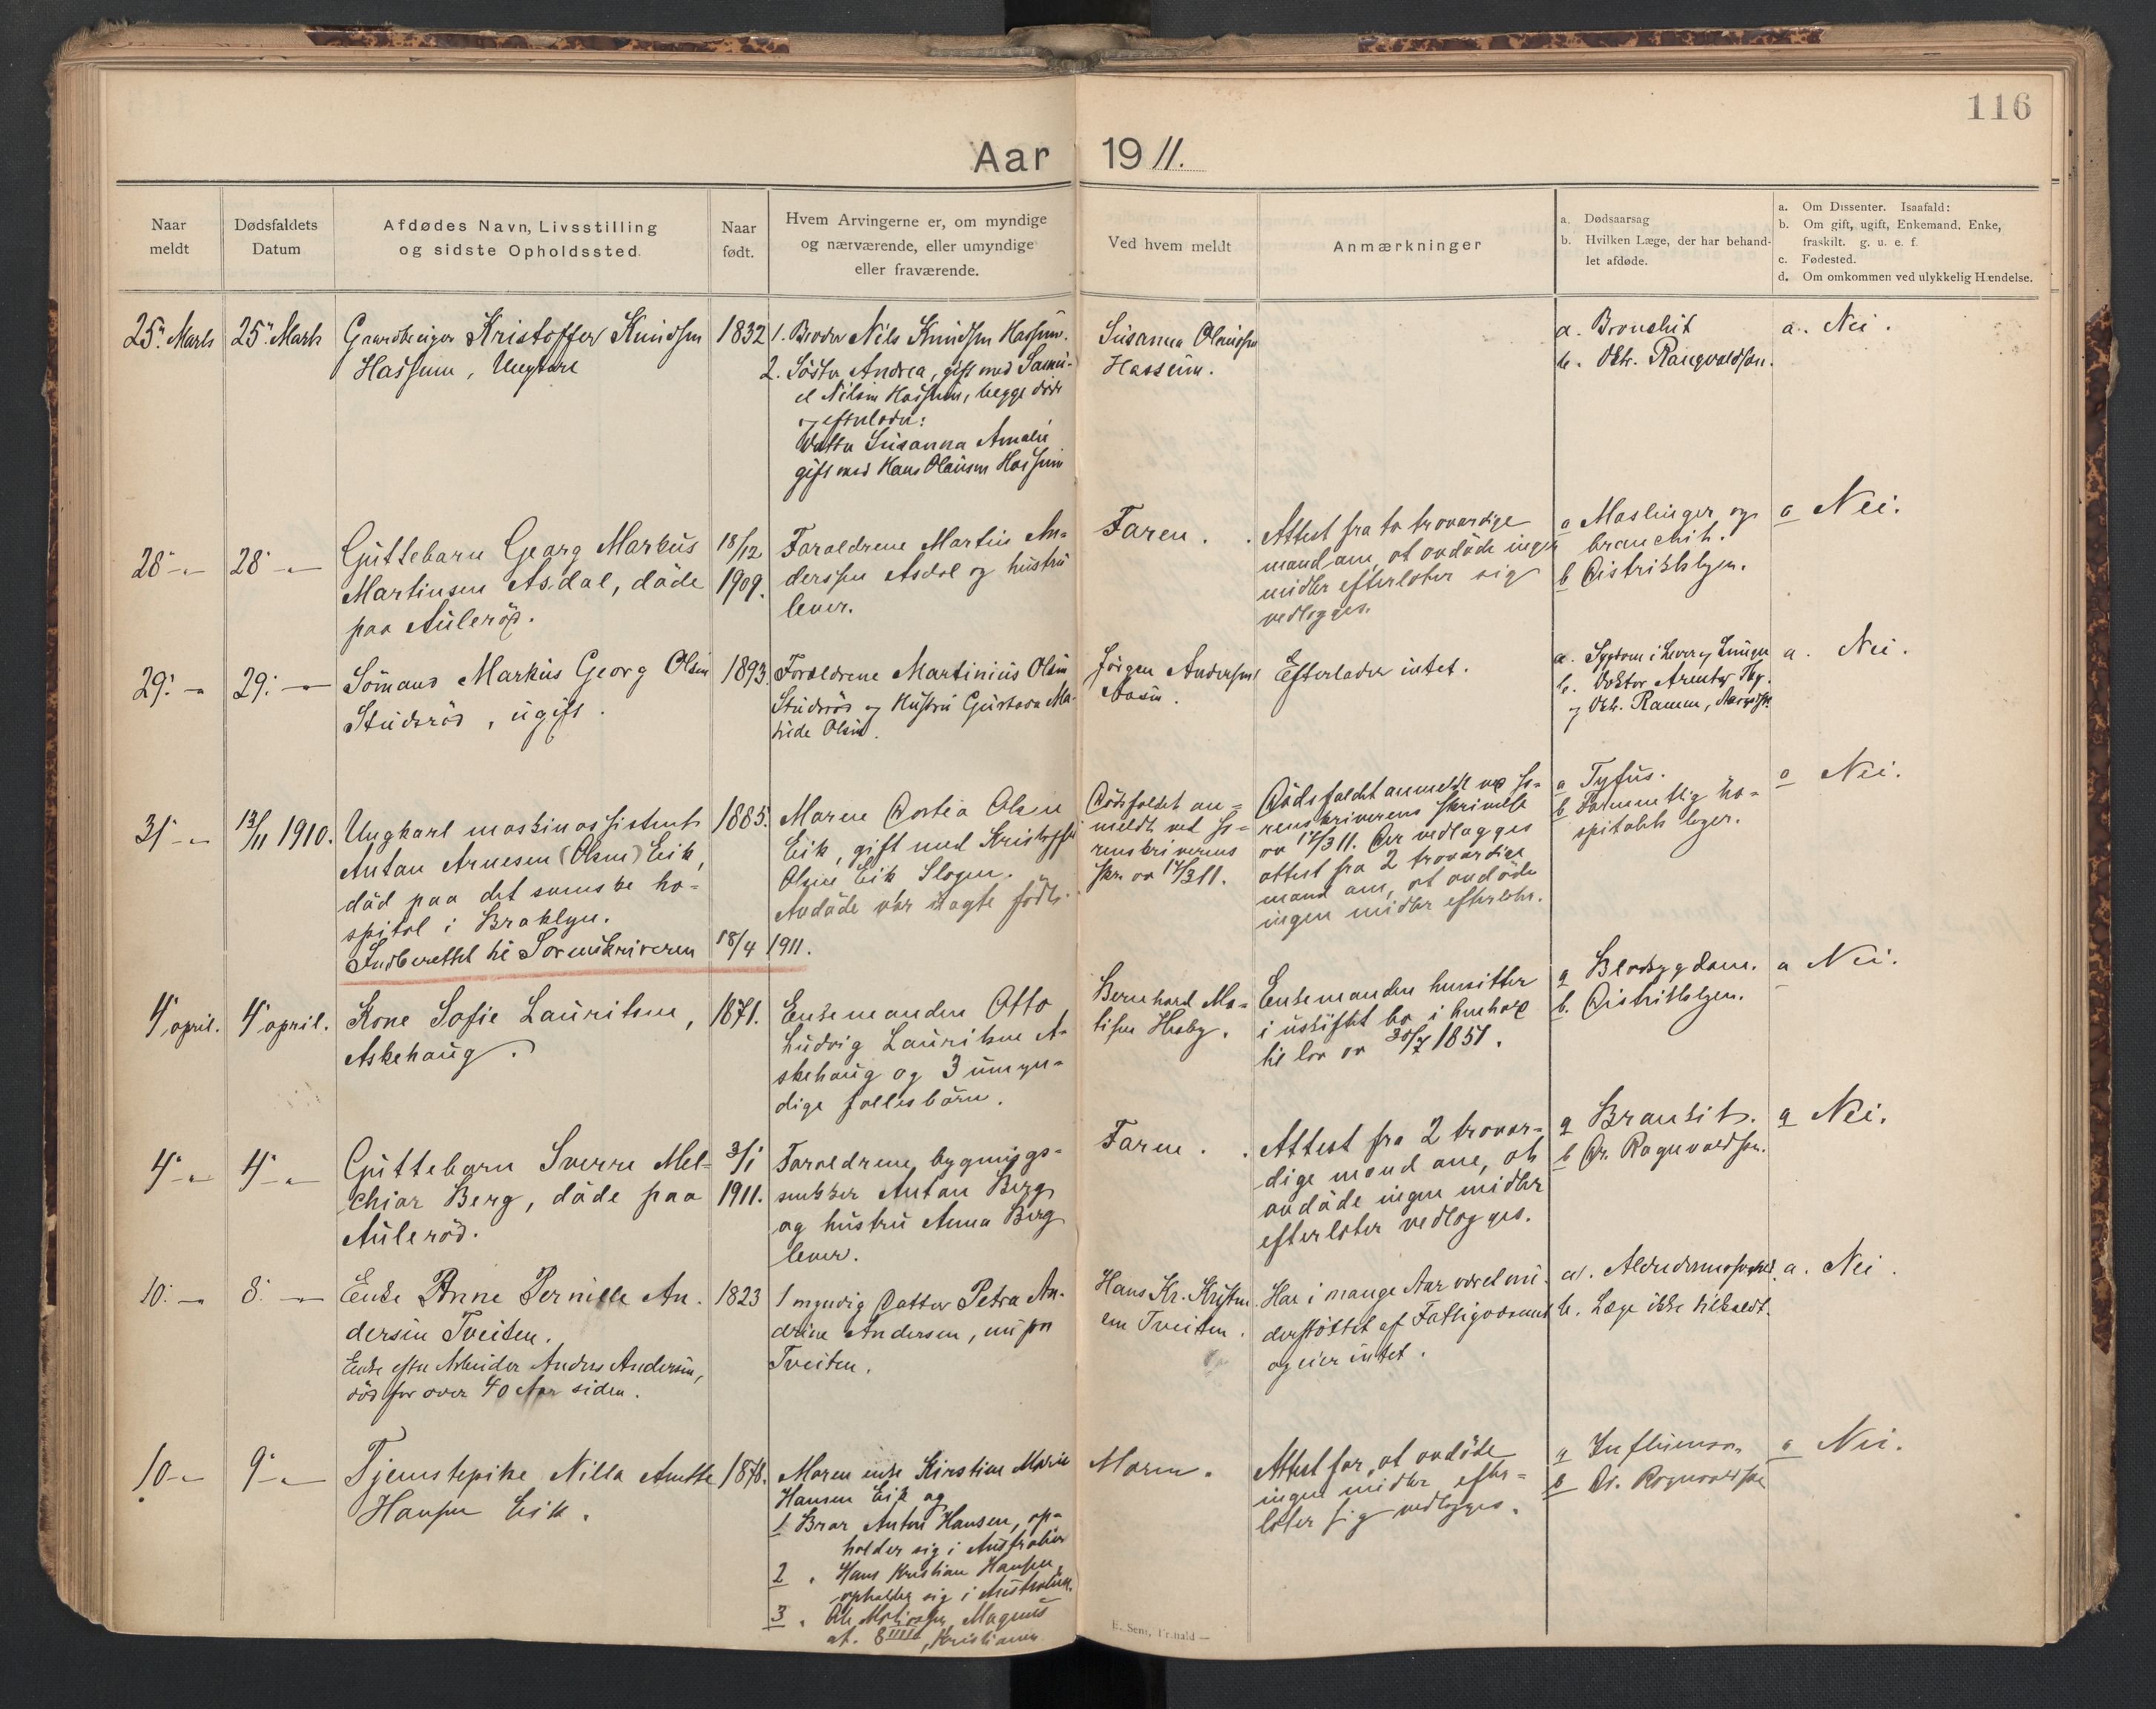 116
Aar 1911.
Naar meldt
Dødsfaldets Datum
Afdødes Navn, Livsstilling og sidste Opholdssted.
Naar født.
Hvem Arvingerne er, om myndige og nærværende, eller umyndige eller fraværende.
Ved hvem meldt
Anmærkninger
a. Dødsaarsag
b. Hvilken Læge, der har behandlet afdøde.
a. Om Dissenter. Isaafald:
b. Om gift, ugift, Enkemand. Enke, fraskilt. g. u. e. f.
c. Fødested.
d. Om omkommen ved ulykkelig Hændelse.
25' Marts
25' Marts
Gaardbruger Kristoffer Knudsen
Hassum, Ungkarl
1832
1. Broder Nils Knudsen Hassum.
2. Søster Andrea, gift med Samu-
el Nilsen Hassum, begge døde
og efterlader:
Datter Susanna Amalie
gift med Hans Olausen Hassum
Susanna Olausen
Hassum.
a. Bronchit
b. Dktr. Rangvaldsen.
a. Nei.
28' — " —
28' — " —
Guttebarn Georg Markus
Martinsen Asdal, døde
paa Aulerød.
18/12
1909.
Foraldrene Martin An-
derssen Asdal og hustru
lever.
Faren.
Attest fra to trovardige
mand om, at avdøde ingen
midler efterlater sig
vedlagges.
a Maslinger og
bronchit.
b Distriktslagen.
a Nei.
29' — " —
29' — " —
Sømand Markus Georg Olsen
Studsrød, ugift.
1893
Forældrene Martinius Olsen
Studsrød og Hustru Gustava Ma-
thilde Olsen.
Jørgen Andersen
Aasen.
Efterlader intet.
a. Sygdom i Lever og Lunger
b. Doktor Arentz, Tbg.
og Dktr. Ramm,
a. Nei.
31' — " —
13/11 1910.
Ungkarl maskinassistent
Anton Arnesen (Olsen) Eik,
død paa det svenske ho-
spital i Broklyn.
Indberettet til Sorenskriveren 18/4 1911.
1885.
Maren Dortea Olsen
Eik, gift med Kristoffer
Olsen Eik Slagen.
Avdøde var uagte født.
Dødsfaldet an-
meldt ved So-
renskriverens
skr. av 17/3 11.
Dødsfaldet anmeldt ved So-
renskriverens skrivelse
av 17/3 11. Der vedlagges
attest fra 2 trovardige
mand om, at avdøde
ingen midler efterlot.
a Tyfus.
b Formentlig ho-
spitalets lager.
a Nei.
4' april.
4' april.
Kone Sofie Lauritsen,
Askehaug.
1871.
Enkemanden Otto
Ludvig Lauritsen A-
skehaug og 3 umyn-
dige fallesbørn.
Bernhard Ma-
tisen Hesby.
Enkemanden hensitter
i uskiftet bo i henhold
til lov av 30/7 1851.
a Blodsygdom.
b. Distriktslagen.
a Nei.
4' — " —
4' — " —
Guttebarn Sverre Mel-
chior Berg, døde paa
Aulerød.
3/1
1911.
Foraldrene bygnings-
snekker Anton Berg
og hustru Anna Berg
lever.
Faren.
Attest fra 2 trovar-
dige mand om, at
avdøde ingen midler
efterlater vedlagges.
a Bronkit.
b Dr. Ragnvaldsen.
a Nei.
10' — " —
8' — " —
Enke Anne Pernille An-
dersen Tveiten.
Enke efter Arbeider Anders Andersen,
død for over 40 Aar siden.
1823
1 myndig Datter Petra An-
drine Andersen, nu paa
Tveiten.
Hans Kr. Kristen-
sen Tveiten.
Har i mange Aar været un-
derstøttet af Fattigvæsenet
og eier intet.
a. Alderdomssvaghed.
b. Læge ikke tilkaldt.
a. Nei.
10 — " —
9' — " —
Tjenestepike Nilla Anette
Hansen Eik.
1878.
Moren enke Kirstine Marie
Hansen Eik og
1 Bror Anton Hansen, op-
holder sig i Australien
2 " Hans Kristian Hansen,
opholder sig i Australien.
3 " Ole Magnus
Kristiania
Moren.
Attest for, at avdøde
ingen midler efter-
later sig vedlagges.
a Influensa.
b Dr. Ragnvaldsen
a Nei.